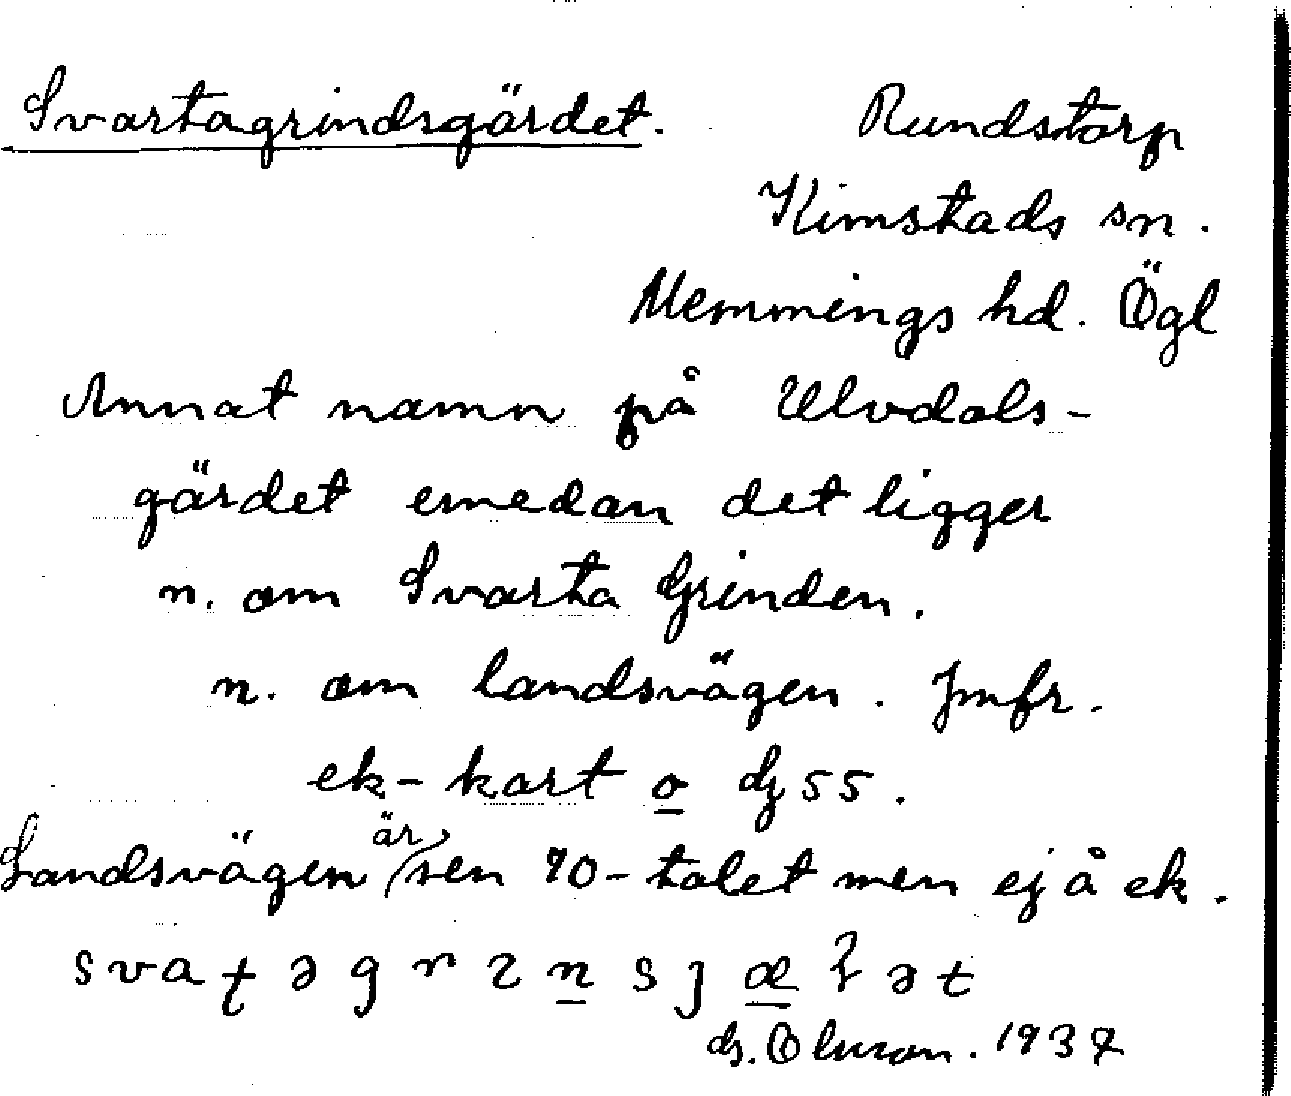 Svartagrindsgärdet. Rundstorp
Kimstads sn.
Memmings hd. Ögl
Annat namn på Ulvdals-
gärdet emedan det ligger
n. om Svarta Grinden.
n. om landsvägen. Jmfr.
ek-kart o 55.
Landsvägen är sen 90-talet men ej å ek.
G. Oluson. 1937